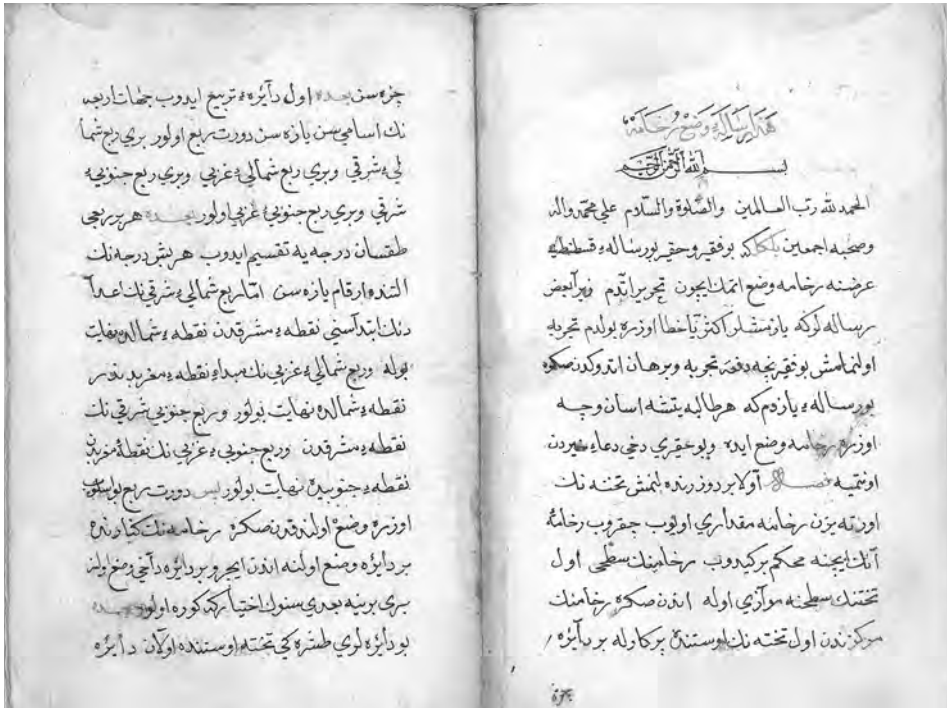 هذا رسالهٔ وضع رخامه
بسم الله الرحمن الرحيم
الحمد لله رب العالمين والصلوة والسلام علي محمد واله
وصحبه اجمعين بلكل كه بو فقير وحقير بو رساله ء قسطنطنيه
عرضنه رخامه وضع اتمك ايچون تحرير ايتدم زيرا بعض
رساله لركه يازمشلر اكثريا خطا اوزره بولدم تجربه
اولنمامش بو فقير نچه دفعه تجربه وبرهان ايتدوكدن صكره
بو رساله ء يازدم كه هر طالبه يتشه اسان وجه
اوزره رخامه وضع ايده وبو حقيري دخي دعاء خيردن
اونتميه فصل اولا بر دوز رنده لنمش تخته نك
اورته يرن رخامه مقداري اويوب چقروب رخامهٔ
آنك ايچنه محكم بركيدوب رخامنك سطحي اول
تختنك سطحنه موازي اوله اندن صكره رخامنك
مركزندن اول تخته نك اوستنده پركارله بر دآئره
جزه
جزه سن بعده اول دآئره ء تربيع ايدوب جهات اربعه
نك اسامي سن يازه سن دورت ربع اولور بري ربع شما
لي ء شرقي وبري ربع شمالي ء غربي وبري ربع جنوبي ء
شرقي وبري ربع جنوبي ء غربي اولور بعده هر بر ربعي
طقسان درجه يه تقسيم ايدوب هر بش درجه نك
التنده ارقام يازه سن امّا ربع شمالي ء شرقي نك اعدآ
دنك ابتدآسني نقطه ء مشرقدن نقطه ء شمالده نهايت
بوله وربع شمالي ء غربي نك مبداء نقطه ء مغربدندر
نقطه ء شمالده نهايت بولور وربع جنوبي شرقي نك
نقطه ء مشرقدن وربع جنوبي ء غربي نك نقطهٔ مغربدن
نقطه ء جنوبده نهايت بولور پس دورت ربع بو اسلوب
اوزره وضع اولندقدن صكره رخامه نك كنارنده
بر دآئره وضع اولنه اندن ايچرو بر دآئره دآخي وضع اولنه
بري برينه بعدي سنوك اختياركه كوره اولور بعده
بو دآئره لري طشره كي تخته اوستنده اولان دآئره